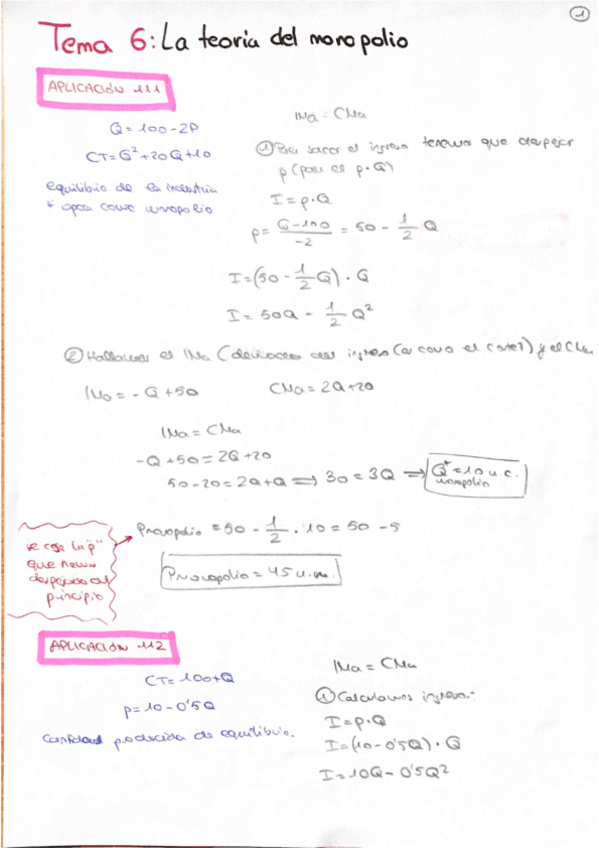 1
Tema 6: La teoría del monopolio
APLICACIÓN 111
Q = 100 - 2P
CT = Q² + 20Q + 10
equilibrio de la industria
opera como monopolio
IMa = CMa
① Para sacar el ingreso tenemos que despejar
p (para el p·Q)
I = p·Q
p = \frac{Q - 100}{-2} = 50 - \frac{1}{2} Q
I = (50 - \frac{1}{2} Q) · Q
I = 50Q - \frac{1}{2} Q²
② Hallamos el IMa (derivadas del ingreso ( como el coste)) y el CMa
IMa = -Q + 50
CMa = 2Q + 20
IMa = CMa
-Q + 50 = 2Q + 20
50 - 20 = 2Q + Q ⟹ 30 = 3Q ⟹ Q* = 10 u.c.
monopolio
Pmonopolio = 50 - \frac{1}{2} · 10 = 50 - 5
Pmonopolio = 45 u.m.
se coge la "p"
que hemos
despejado al
principio
APLICACIÓN 112
CT = 100 + Q
p = 10 - 0'5Q
Cantidad producida de equilibrio.
IMa = CMa
① Calculamos ingreso:
I = p·Q
I = (10 - 0'5Q) · Q
I = 10Q - 0'5Q²